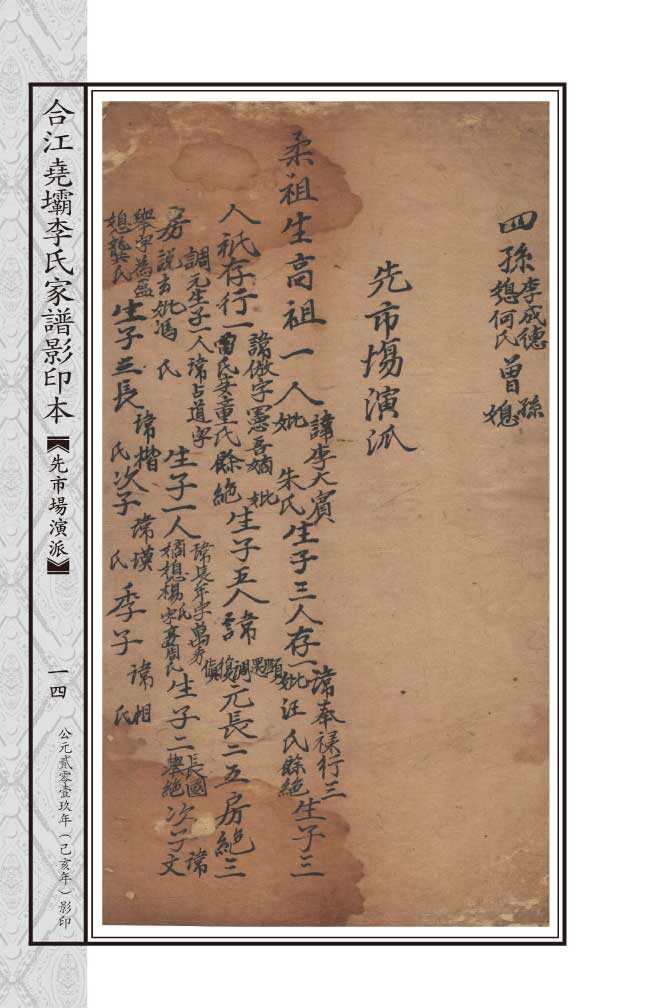 四孫李成德媳何氏曾孫媳
先市塲演派
柔祖生高祖一人諱李大賓妣朱氏生子三人存一諱奉祿行三妣汪氏餘絶生子三
人祇存行一諱倣字憲吾嫡妣曹氏妾童氏餘絶生子五人諱
調元長二五房絶三
房調元生子一人諱占道字說古妣馮氏生子一人諱長年字萬秀嫡媳楊氏生子二長國舉絶次子文諱
舉字為盈媳龔氏生子三長諱楷氏次子諱謨氏季子諱相氏
合江堯壩李氏家譜影印本
【先市場演派】
一四
公元貳零壹玖年（己亥年）影印